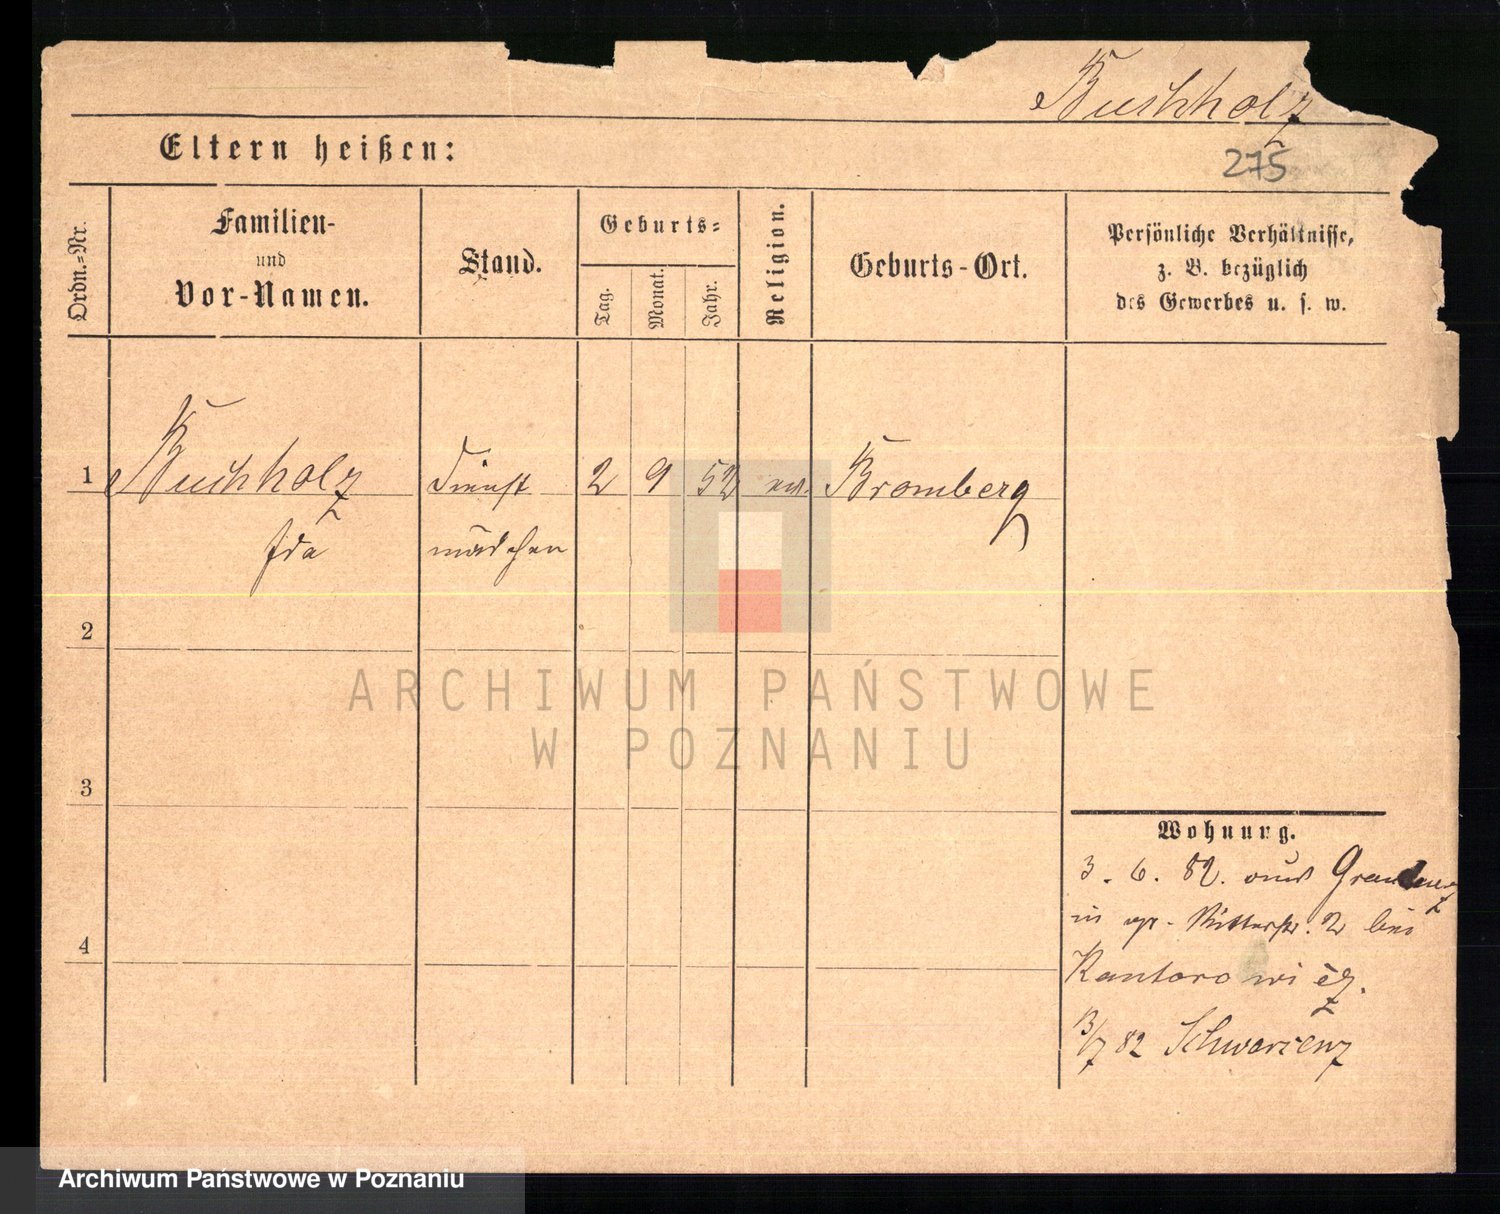 Buchholz
275
Eltern heißen:
Ordn.=Nr.
Familien-
und
Vor-Namen.
Stand.
Geburts=
Tag.
Monat.
Jahr.
Religion.
Geburts-Ort.
Persönliche Verhältnisse,
z. B. bezüglich
des Gewerbes u. s. w.
1 Buchholz Dienst 2 9 52 ev. Bromberg
Ida mädchen
2
3
4
Wohnung.
3. 6. 82. aus Graudenz
in Ritterstr. 2 bei
Kantorowicz.
3/7 82 Schwarzenz
ARCHIWUM PAŃSTWOWE
W POZNANIU
Archiwum Państwowe w Poznaniu